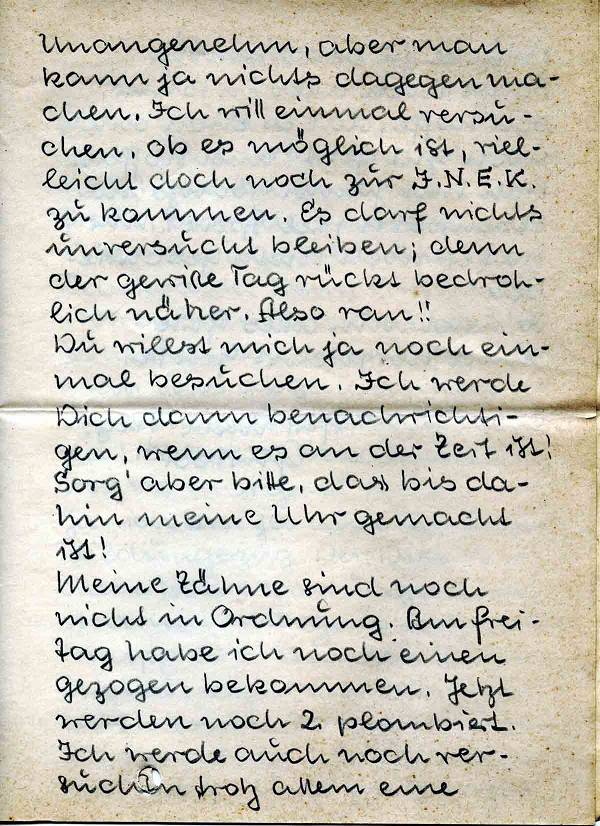 Unangenehm, aber man
kann ja nichts dagegen ma-
chen. Ich will einmal versu-
chen, ob es möglich ist, viel-
leicht doch noch zur J.N.E.K.
zu kommen. Es darf nichts
unversucht bleiben; denn
der gewiße Tag rückt bedroh-
lich näher. Also ran!!
Du willst mich ja noch ein-
mal besuchen. Ich werde
Dich dann benachrichti-
gen, wenn es an der Zeit ist!
Sorg' aber bitte, dass bis da-
hin meine Uhr gemacht
ist!
Meine Zähne sind noch
nicht in Ordnung. Am Frei-
tag habe ich noch einen
gezogen bekommen. Jetzt
werden noch 2 plombiert.
Ich werde auch noch ver-
suchen trotz allem eine